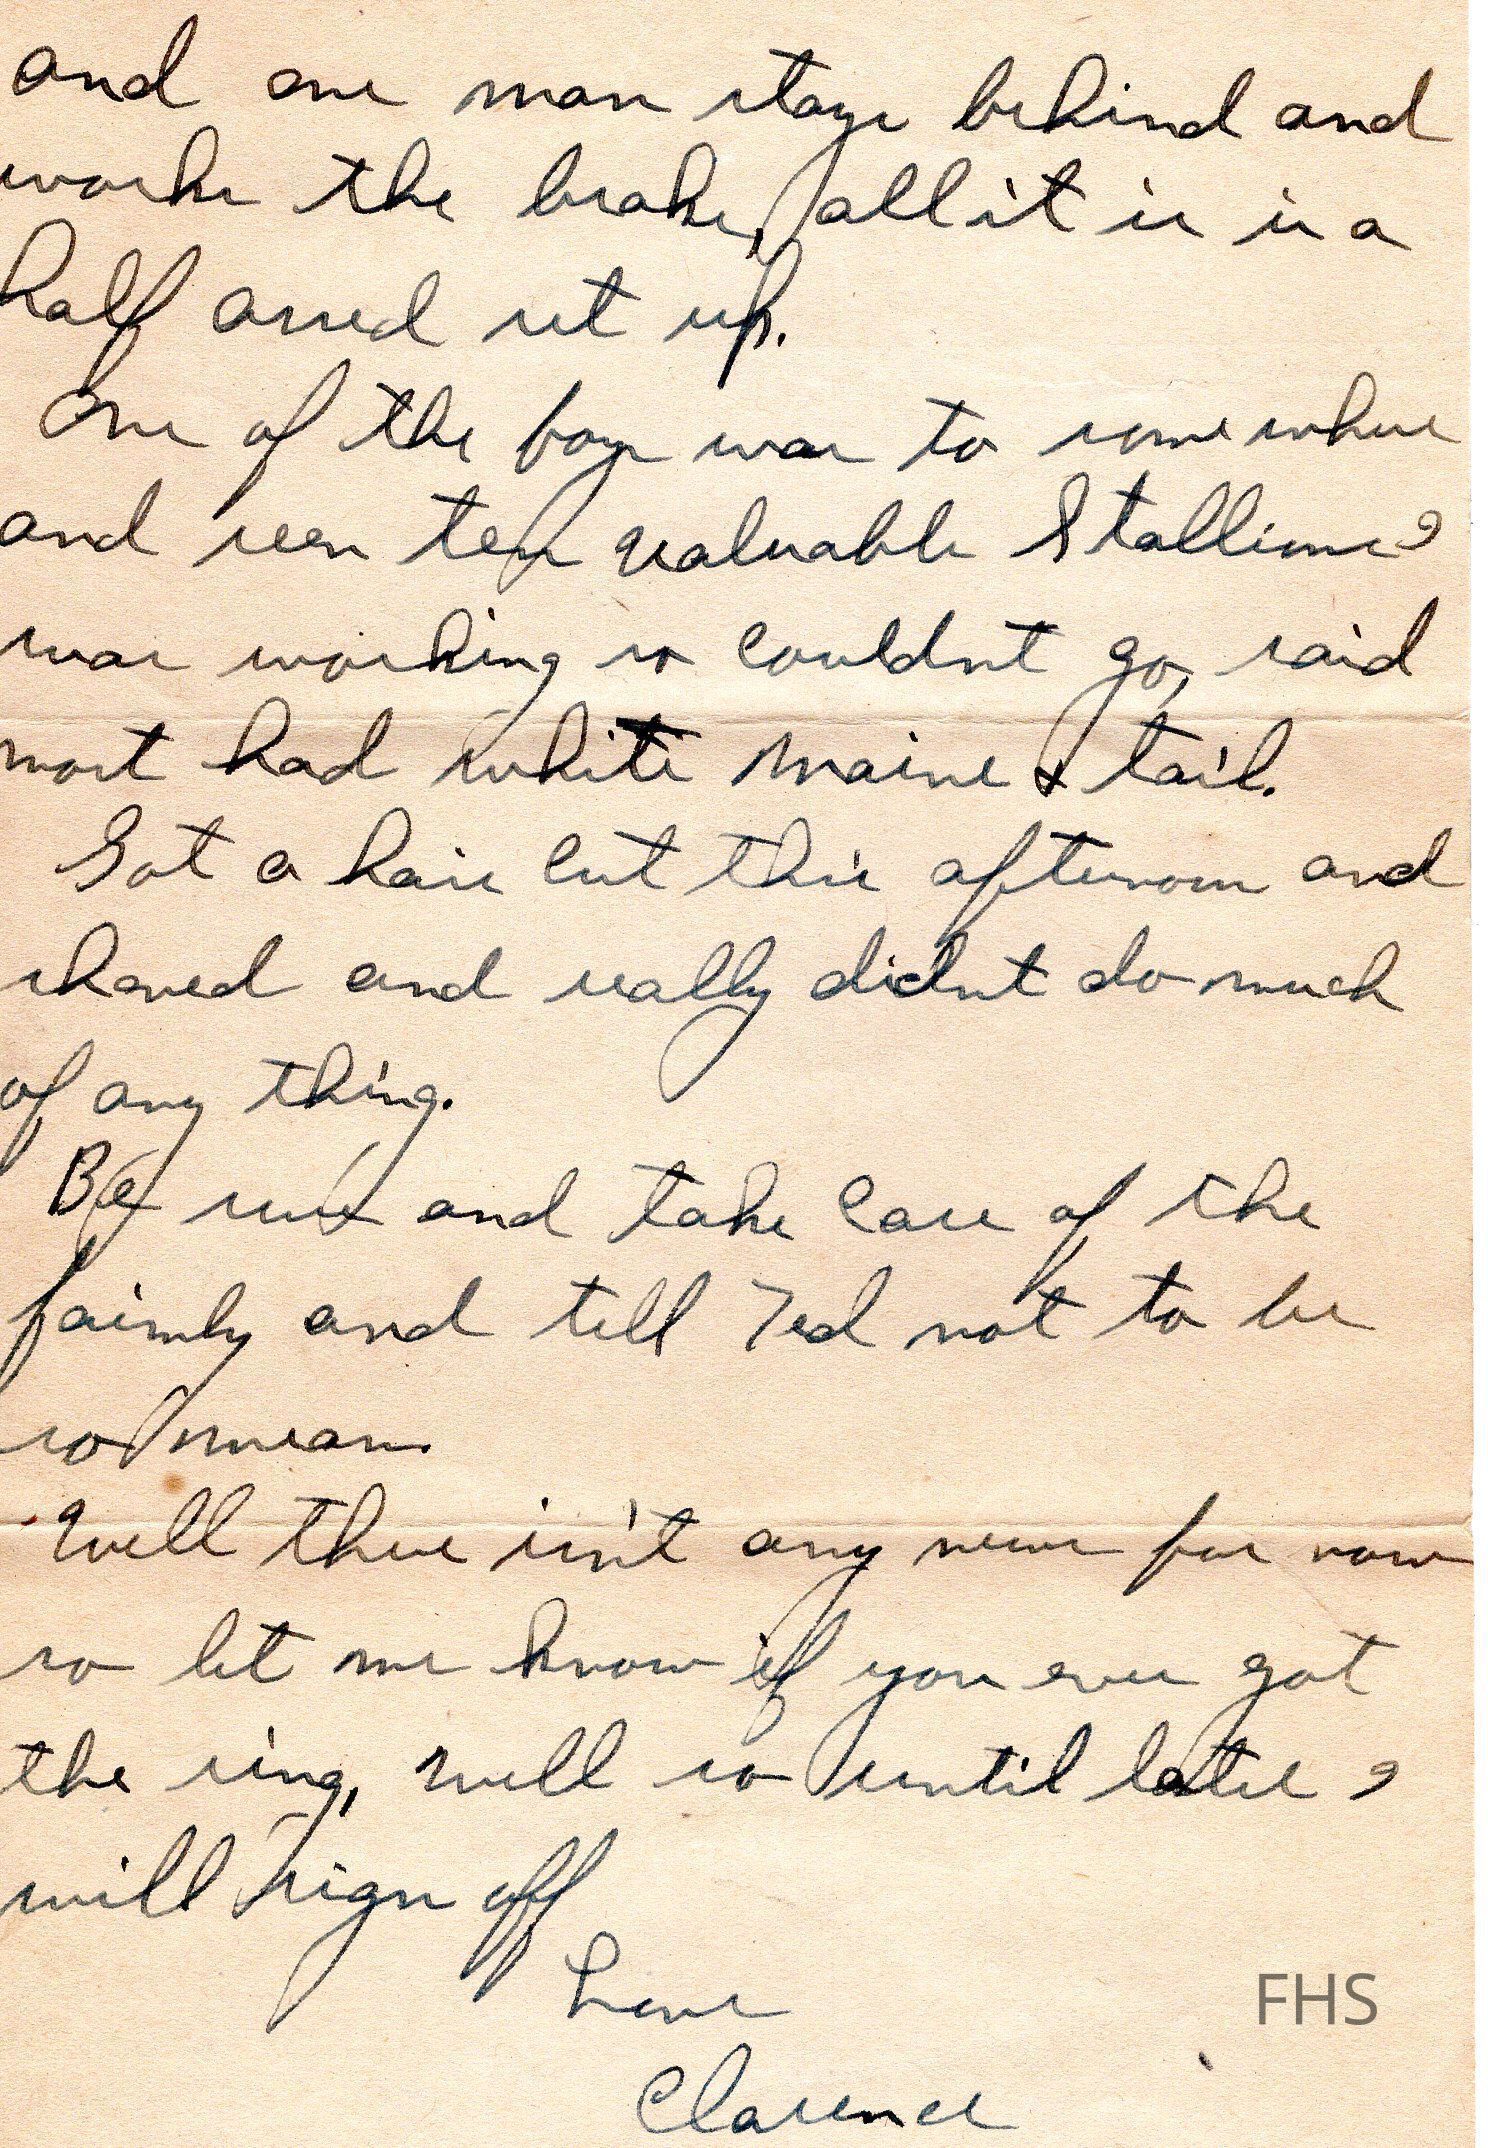 and one man stays behind and
works the brake, all it is is a
half assed set up.
One of the boys was to somewhere
and seen ten valuable Stallions I
was working so couldnt go, said
most had white maine & tail.
Got a hair cut this afternoon and
shaved and really didnt do much
of any thing.
Be sure and take care of the
faimly and tell Ted not to be
so mean.
Well there isn't any news for now
so let me know if you ever got
the ring, well so until later I
will sign off
Love
Clarence
FHS